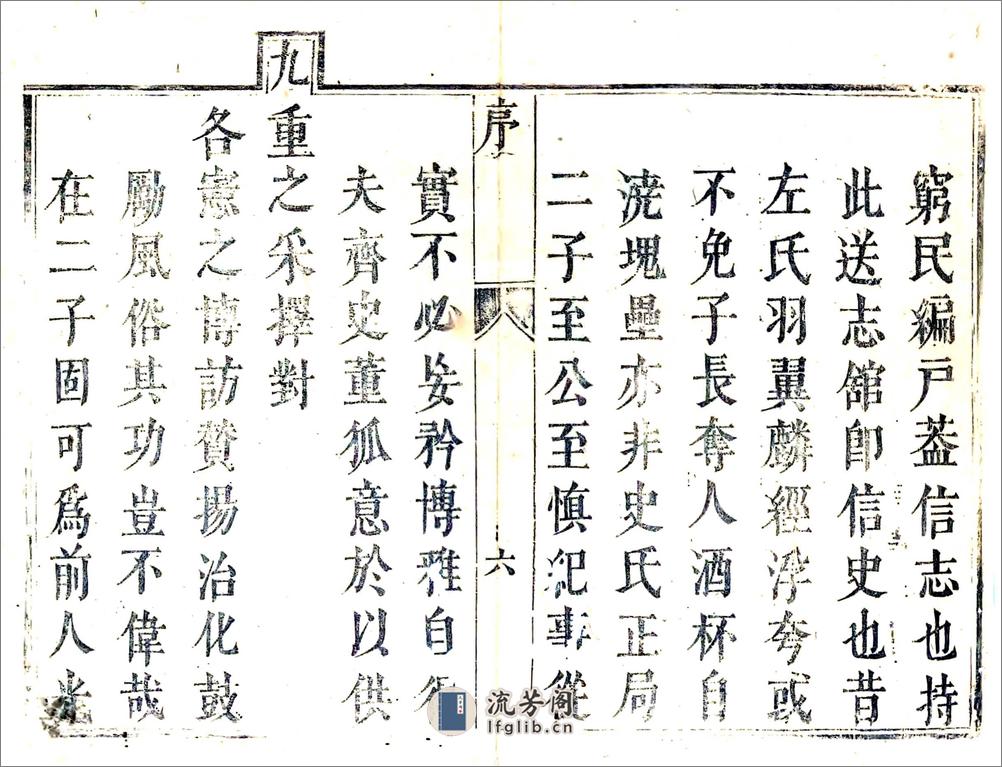 窮民編戸葢信志也持
此送志舘卽信史也昔
左氏羽翼麟經浮夸或
不免子長奪人酒杯自
澆塊壘亦非史氏正局
二子至公至慎紀事從
序
六
實不必妄矜博雅自
夫齊史董狐意於以供
九
重之采擇對
各憲之博訪贊揚治化鼓
勵風俗其功豈不偉哉
在二子固可爲前人光
流芳阁
lfglib.cn